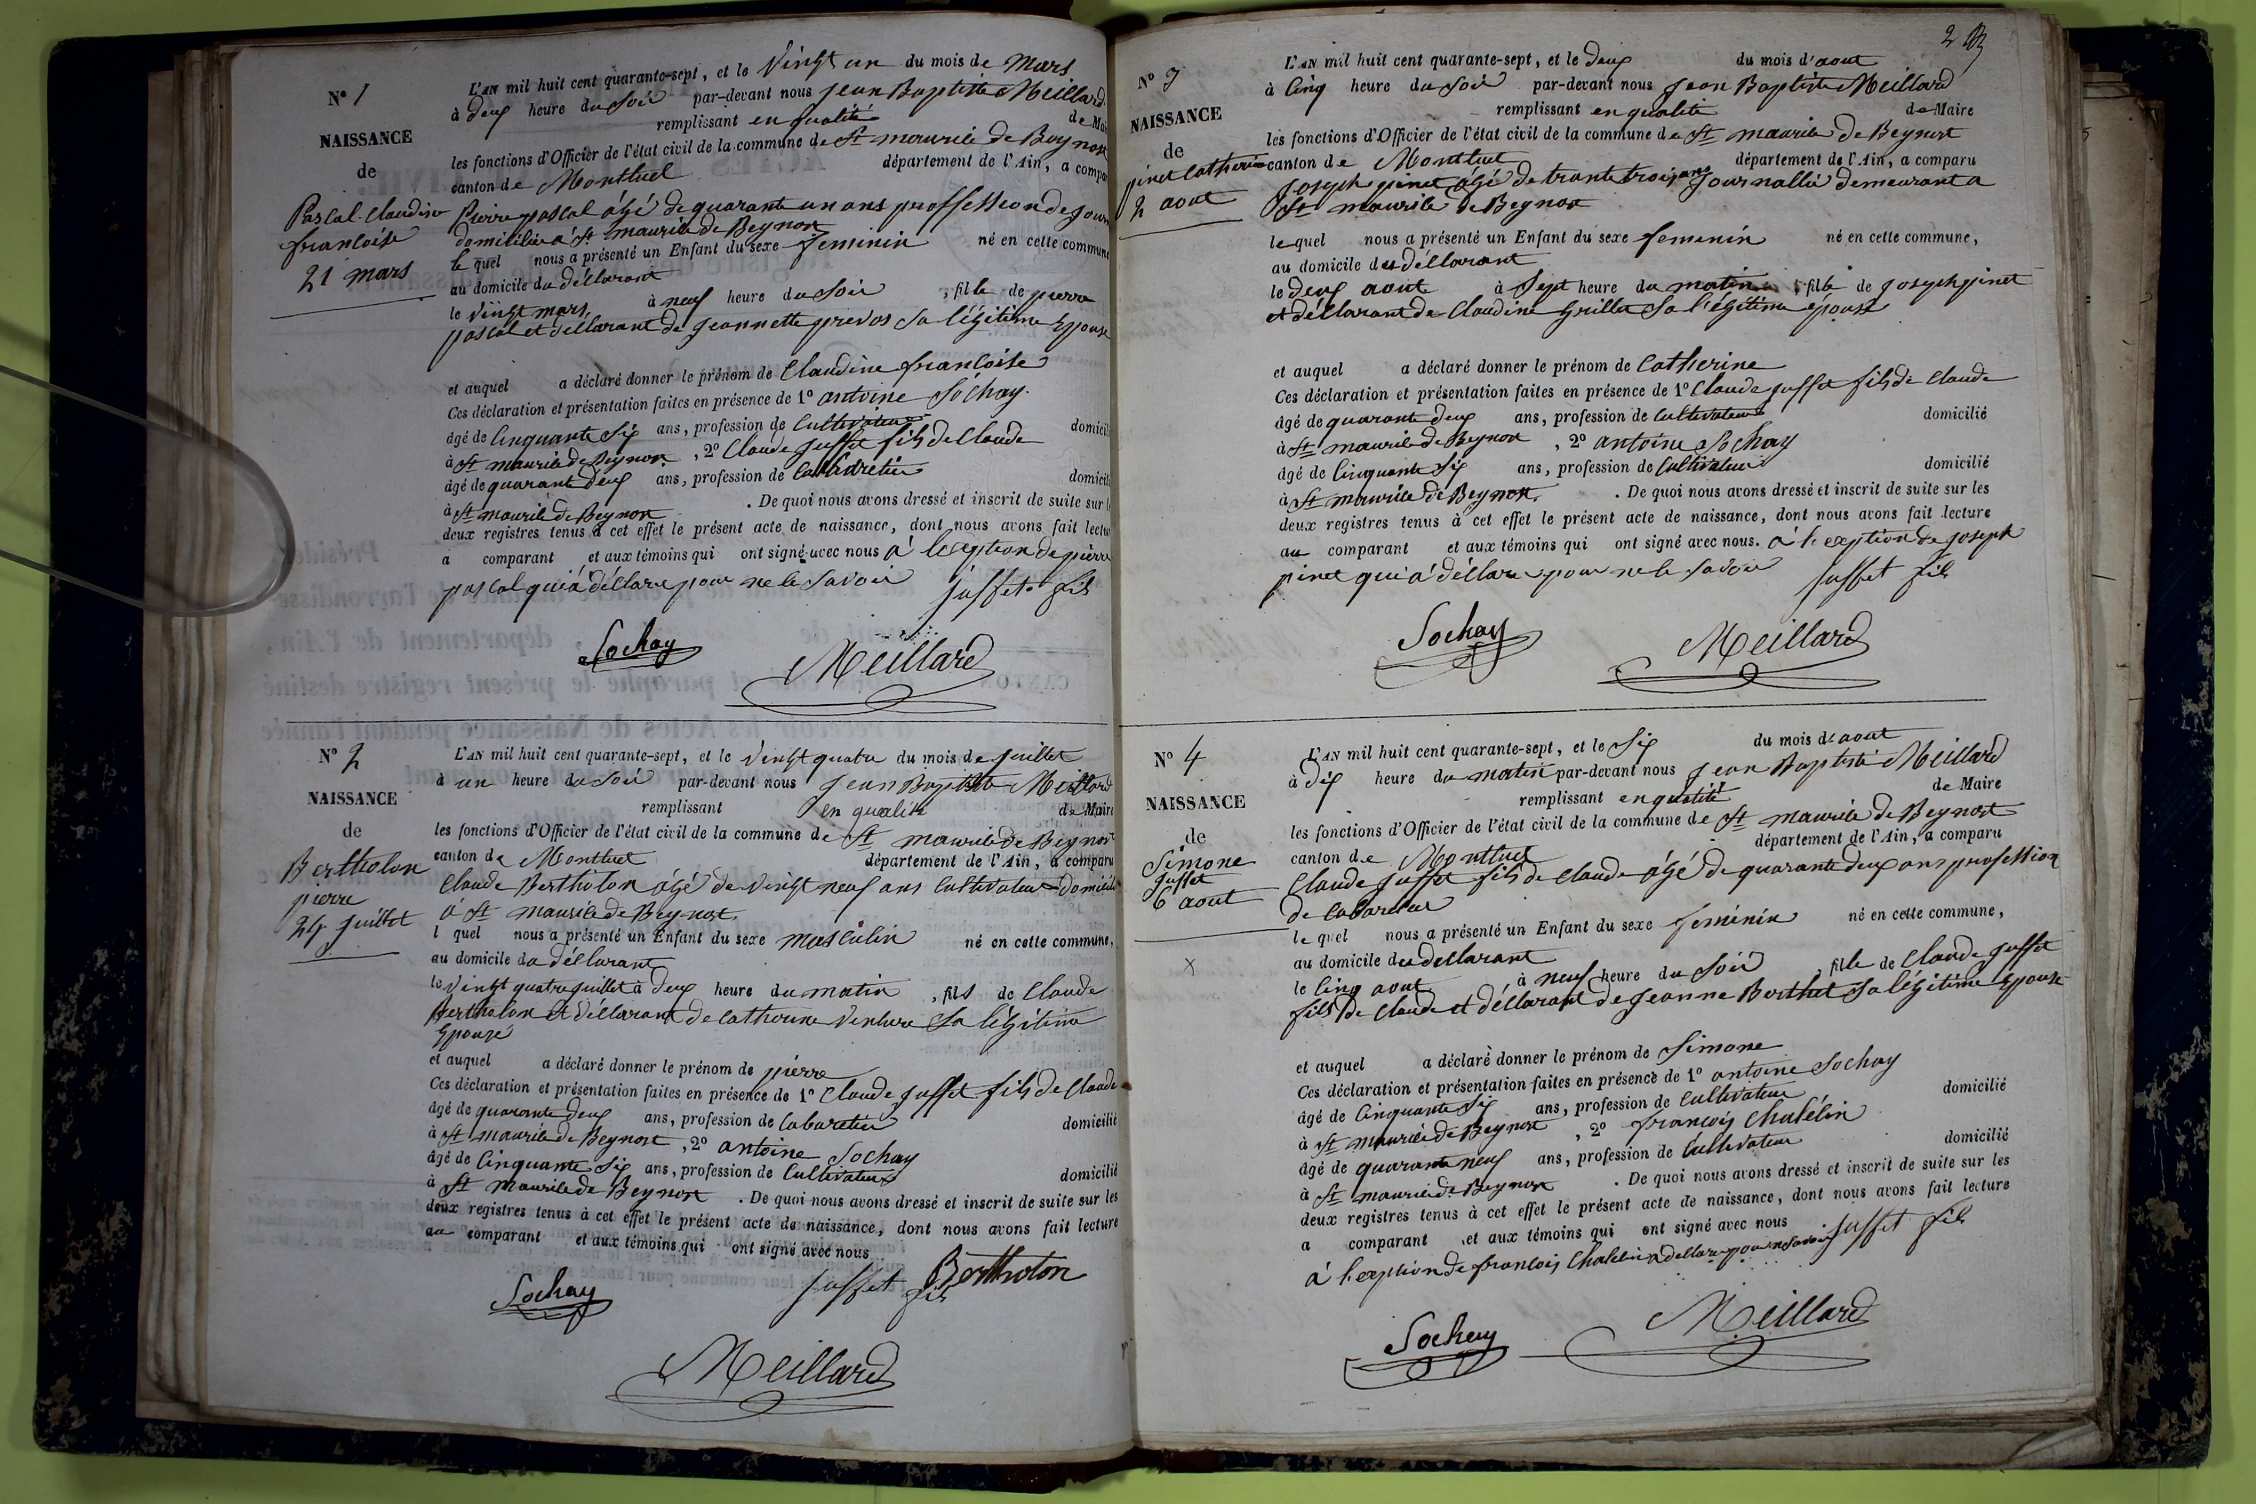 N° 1
NAISSANCE
de
Pascal Claudine
francoise
21 mars
L'AN mil huit cent quarante-sept, et le vingt un du mois de mars
à deux heure du soir par-devant nous jean Baptiste Meillard
remplissant en qualité de Mai
les fonctions d'Officier de l'état civil de la commune de St maurice de Beynost
canton de Montluel département de l'Ain, a compar
Pierre pascal âgé de quarante un ans proffession de jour
domicilié à St maurice de Beynost
le quel nous a présenté un Enfant du sexe feminin né en cette commune
au domicile du déclarant
le vingt mars à neuf heure du soir, fille de pierre
pascal et déclarant de jeannette prevos sa légitime Epouse
et auquel a déclaré donner le prénom de Claudine francoise
Ces déclaration et présentation faites en présence de 1° antoine Sochay
âgé de Cinquante Six ans, profession de Cultivateur domicil
à St maurice de Beynost, 2° Claude juffet fils de Claude
âgé de quarant deux ans, profession de Cabaretier domicil
à St maurice de Beynost. De quoi nous avons dressé et inscrit de suite sur l
deux registres tenus à cet effet le présent acte de naissance, dont nous avons fait lectu
a comparant et aux témoins qui ont signé avec nous à l'exeption de pierre
pascal qui à déclare pour ne le savoir juffet fils
Sochay
Meillard
N° 2
NAISSANCE
de
Bertholon
pierre
24 juillet
L'AN mil huit cent quarante-sept, et le vingt quatre du mois de juillet
à un heure du soir par-devant nous jean Baptiste Meillard
remplissant en qualité de Maire
les fonctions d'Officier de l'état civil de la commune de St maurice de Beynost
canton de Montluel département de l'Ain, a comparu
Claude Bertholon âgé de vingt neuf ans Cultivateur domicilié
à St maurice de Beynost
l quel nous a présenté un Enfant du sexe masculin né en cette commune,
au domicile du déclarant
le vingt quatre juillet à deux heure du matin, fils de Claude
Bertholon et déclarant de Catherine Venture sa légitime
Epouse
et auquel a déclaré donner le prénom de pierre
Ces déclaration et présentation faites en présence de 1° Claude juffet fils de Claude
âgé de quarante deux ans, profession de Cabaretier domicilié
à St maurice de Beynost, 2° antoine Sochay
âgé de Cinquante Six ans, profession de Cultivateur domicilié
à St maurice de Beynost. De quoi nous avons dressé et inscrit de suite sur les
deux registres tenus à cet effet le présent acte de naissance, dont nous avons fait lecture
au comparant et aux témoins qui ont signé avec nous
Bertholon
Sochay juffet fils
Meillard
2
N° 3
NAISSANCE
de
pinet Catherine
2 aout
L'AN mil huit cent quarante-sept, et le deux du mois d'aout
à Cinq heure du soir par-devant nous jean Baptiste Meillard
remplissant en qualité de Maire
les fonctions d'Officier de l'état civil de la commune de St maurice de Beynost
canton de Montluel département de l'Ain, a comparu
Joseph pinet âgé de trante trois ans journallié demeurant a
St maurice de Beynost
le quel nous a présenté un Enfant du sexe femenin né en cette commune,
au domicile du déclarant
le deux aout à Sept heure du matin, fille de joseph pinet
et déclarant de Claudine Grillet Sa légitime épouse
et auquel a déclaré donner le prénom de Catherine
Ces déclaration et présentation faites en présence de 1° Claude juffet fils de Claude
âgé de quarante deux ans, profession de Cultivateur domicilié
à St maurice de Beynost, 2° antoine Sochay
âgé de Cinquante Six ans, profession de Cultivateur domicilié
à St maurice de Beynost. De quoi nous avons dressé et inscrit de suite sur les
deux registres tenus à cet effet le présent acte de naissance, dont nous avons fait lecture
au comparant et aux témoins qui ont signé avec nous. à l'exeption de joseph
pinet qui à déclare pour ne le savoir juffet fils
Sochay
Meillard
N° 4
NAISSANCE
de
Simone
juffet
6 aout
x
L'AN mil huit cent quarante-sept, et le six du mois d'aout
à dix heure du matin par-devant nous jean Baptiste Meillard
remplissant en qualité de Maire
les fonctions d'Officier de l'état civil de la commune de St maurice de Beynost
canton de Montluel département de l'Ain, a comparu
Claude juffet fils de Claude âgé de quarante deux ans profession
de Cabareteur
le quel nous a présenté un Enfant du sexe feminin né en cette commune,
au domicile du déclarant
le Cinq aout à neuf heure du Soir, fille de Claude juffet
fils de Claude et déclarant de jeanne Berthet sa légitime Epouse
et auquel a déclaré donner le prénom de Simone
Ces déclaration et présentation faites en présence de 1° antoine Sochay
âgé de Cinquante Six ans, profession de Cultivateur domicilié
à St maurice de Beynost, 2° francois Chatelin
âgé de quarante neuf ans, profession de Cultivateur domicilié
à St maurice de Beynost. De quoi nous avons dressé et inscrit de suite sur les
deux registres tenus à cet effet le présent acte de naissance, dont nous avons fait lecture
a comparant et aux témoins qui ont signé avec nous juffet fils
à l'exeption de francois Chatelin a déclare pour ne savoir
Sochay
Meillard